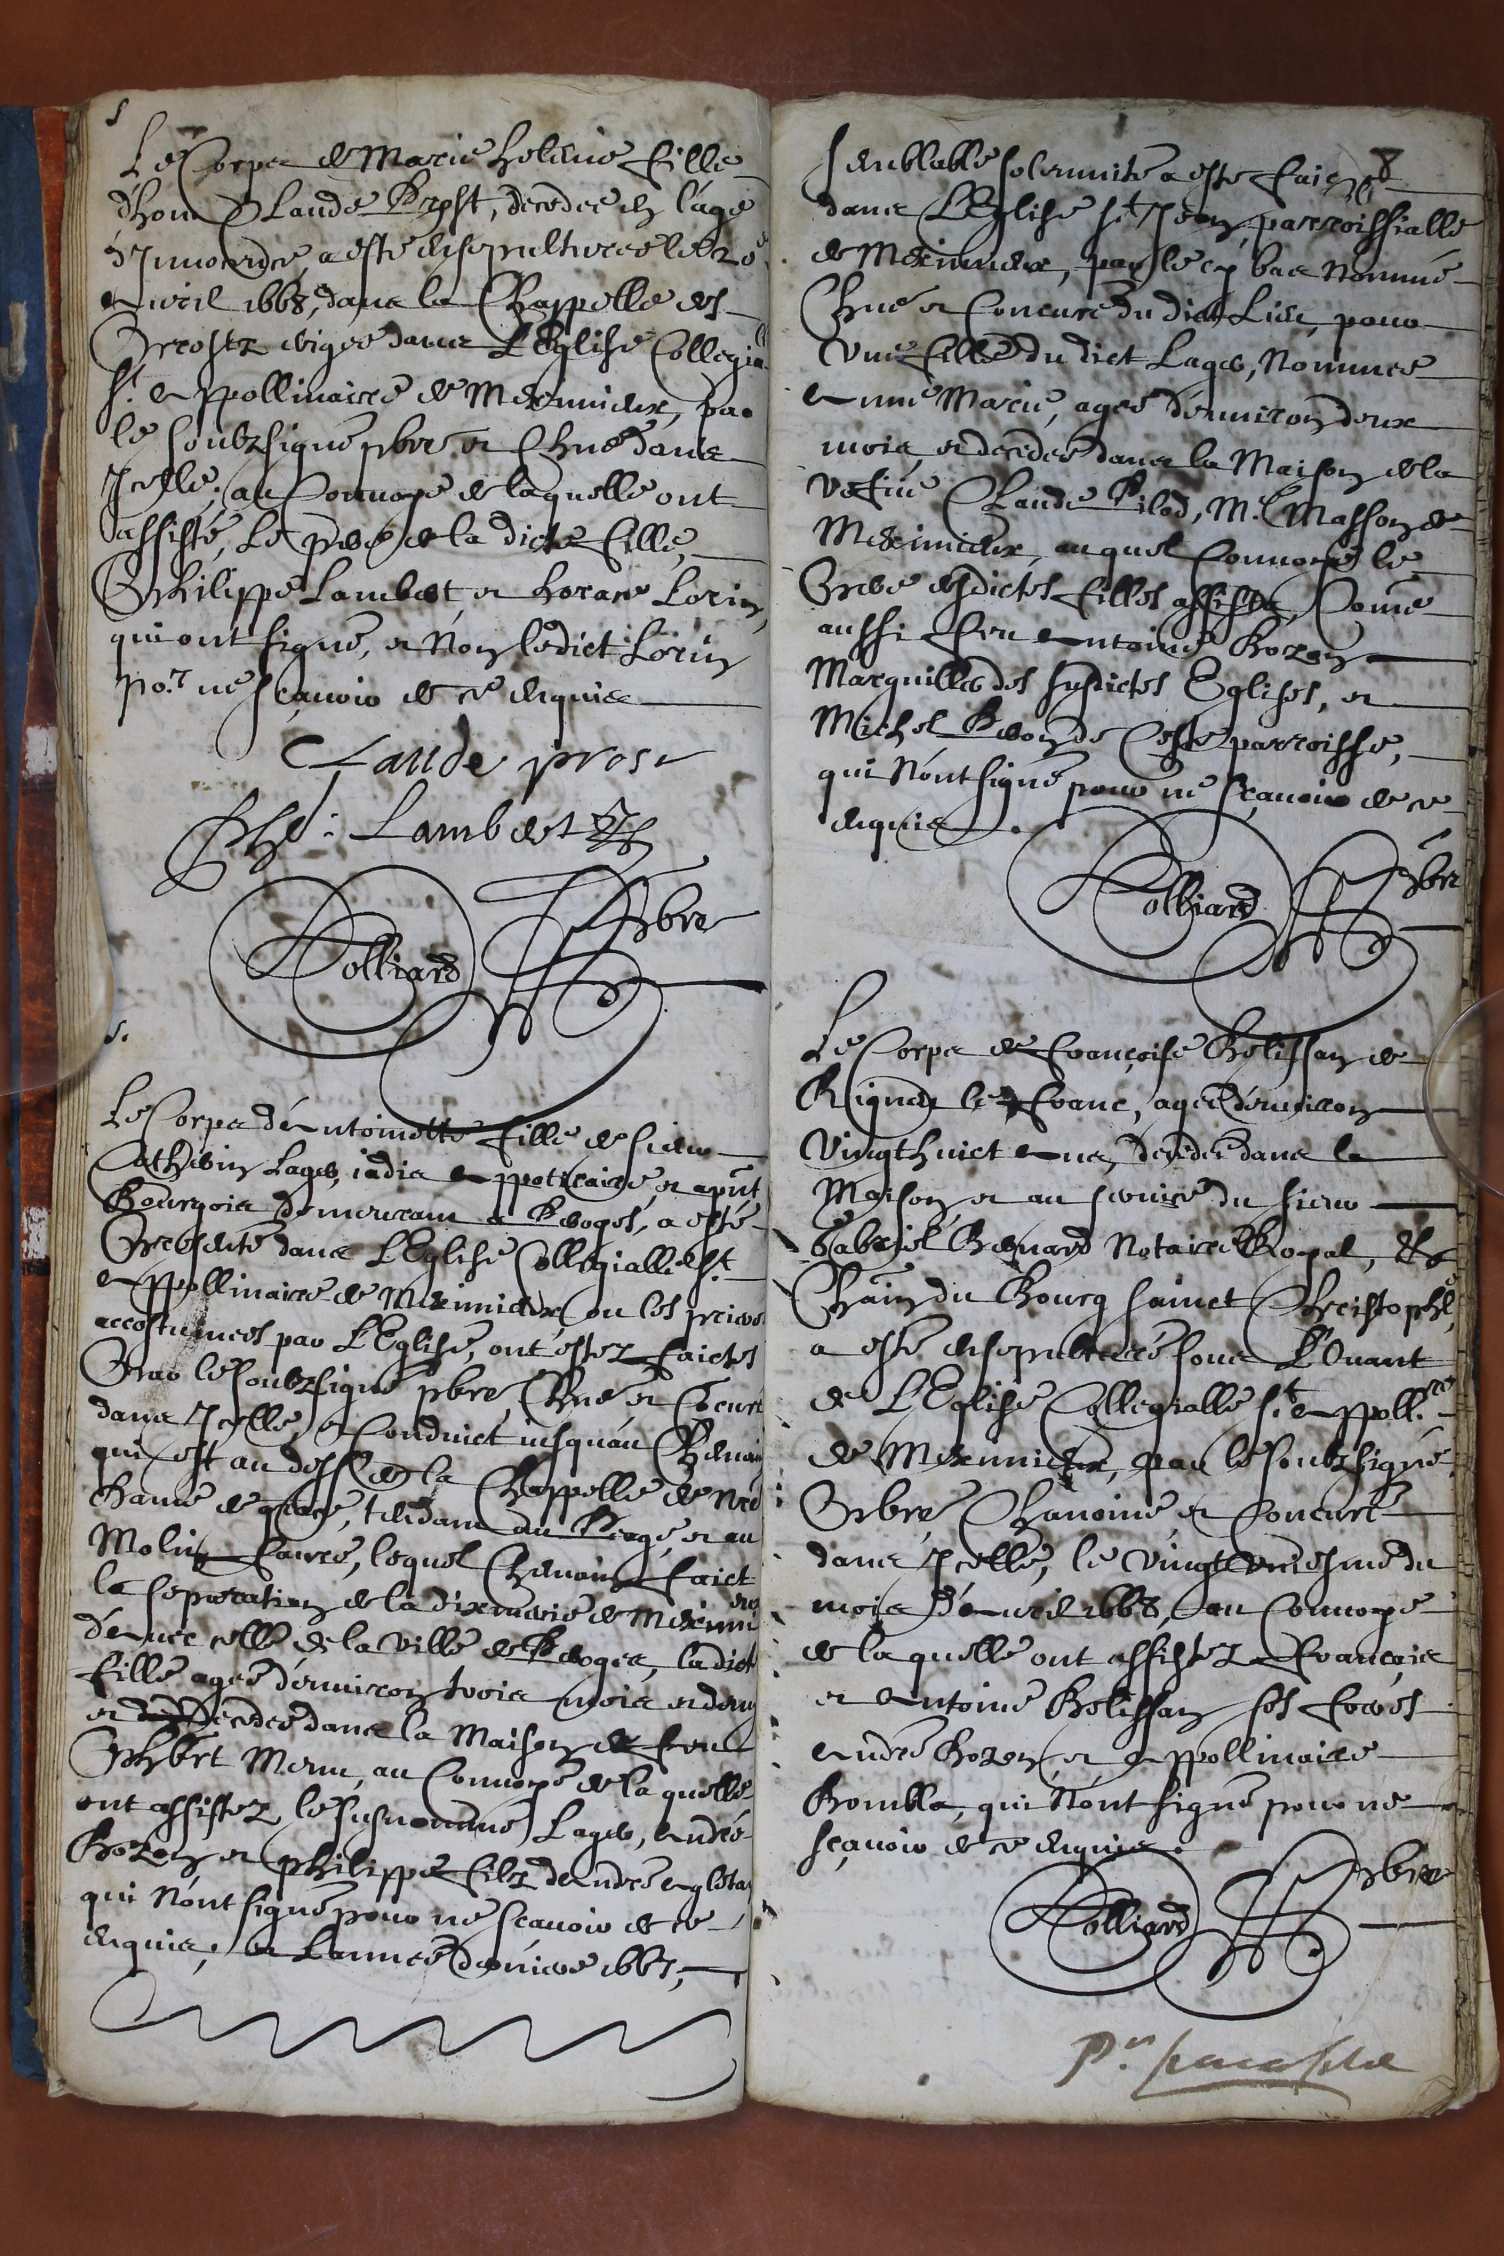 Le Corps de Marie helaine fille
d'hon. Claude Prost, decedee en l'age
d'Innocence, a esté ensepulturee le 20e
Avril 1668, dans la Chappelle des
Prostz erigee dans L'Eglise Collegialle
St. Appollinaire de Meximieux, par
le soubzsigné pbre et Chne dans
Icelle, au Convoye de laquelle ont
assisté, Le pere de la dicte fille,
Philippe Lambert et horace Lorin,
qui ont signé, et Non ledict Lorin
po.r ne sçavoir de ce enquis
Claude prost
Phe: Lambert
Colliard Pbre
Le Corps d'Antoinette fille de sieur
Cathérin Lager, iadis Appoticaire et apnt
Bourgois demeurant a Peroges, a esté
Presenté dans L'Eglise Collegialle St
Appollinaire de Meximieux ou les prieres
accostumees par L'Eglise, ont estez faictes
Par le soubzsigné pbre Chne et Concuré
dans Icelle, et Conduict iusqu'au Chemin
qui est au dess de la Chappelle de Nre
Dame de grace, tendant au Peage, et au
Molin, lequel Chemin faict
la separation de la dixmerie de Meximieux
d'avec celle de la Ville de Peroges, ladicte
fille agee d'environ trois mois et demy
et decedee dans la Maison de feu
Phbert Meru, au Convoye de laquelle
ont assistez, le susnommé Lager, André
Bozon et philippe filz d'André
qui N'ont signé pour ne sçavoir de ce
enquis, et L'année derniere 1667,
8
semblable solemnité a esté faicte
dans L'Eglise St Jean, parroissialle
de Meximieux, par le cy bas Nommé
Chne et Concuré du dict Lieu, pour
Une fille du dict Lager, Nommee
Anne Marie, agee d'environ deux
mois, et decedee dans la Maison de la
Vefve Claude Pilod, Me Masson de
Meximieux, auquel Convoye le
Pere desdictes filles assista, Come
aussi feu Antoine Bozon
Marguillier des susdictes Eglises, et
Michel de Ceste parroisse,
qui N'ont signé pour ne sçavoir de ce
enquis.
Colliard Pbre
Le Corps de Françoise Belissan de
Rignieu le Franc, agee d'environ
Vingt huict ans, decedee dans la
Maison et au service du sieur
Gabriel Notaire Royal, &
Chain du Bourg sainct Christophle,
a esté ensepulturé sous L'Auant
de L'Eglise Collegialle St Appoll.re
de Meximieux, par le soubzsigné
Pbre Chanoine, et Concuré
dans Icelle, le Vingt uniesme du
mois d'Avril 1668, au Convoye
de laquelle ont assistez François
et Antoine Belissan ses freres
André Bozon, et Appollinaire
Bombla, qui N'ont signé pour ne
sçavoir de ce enquis.
Colliard Pbre